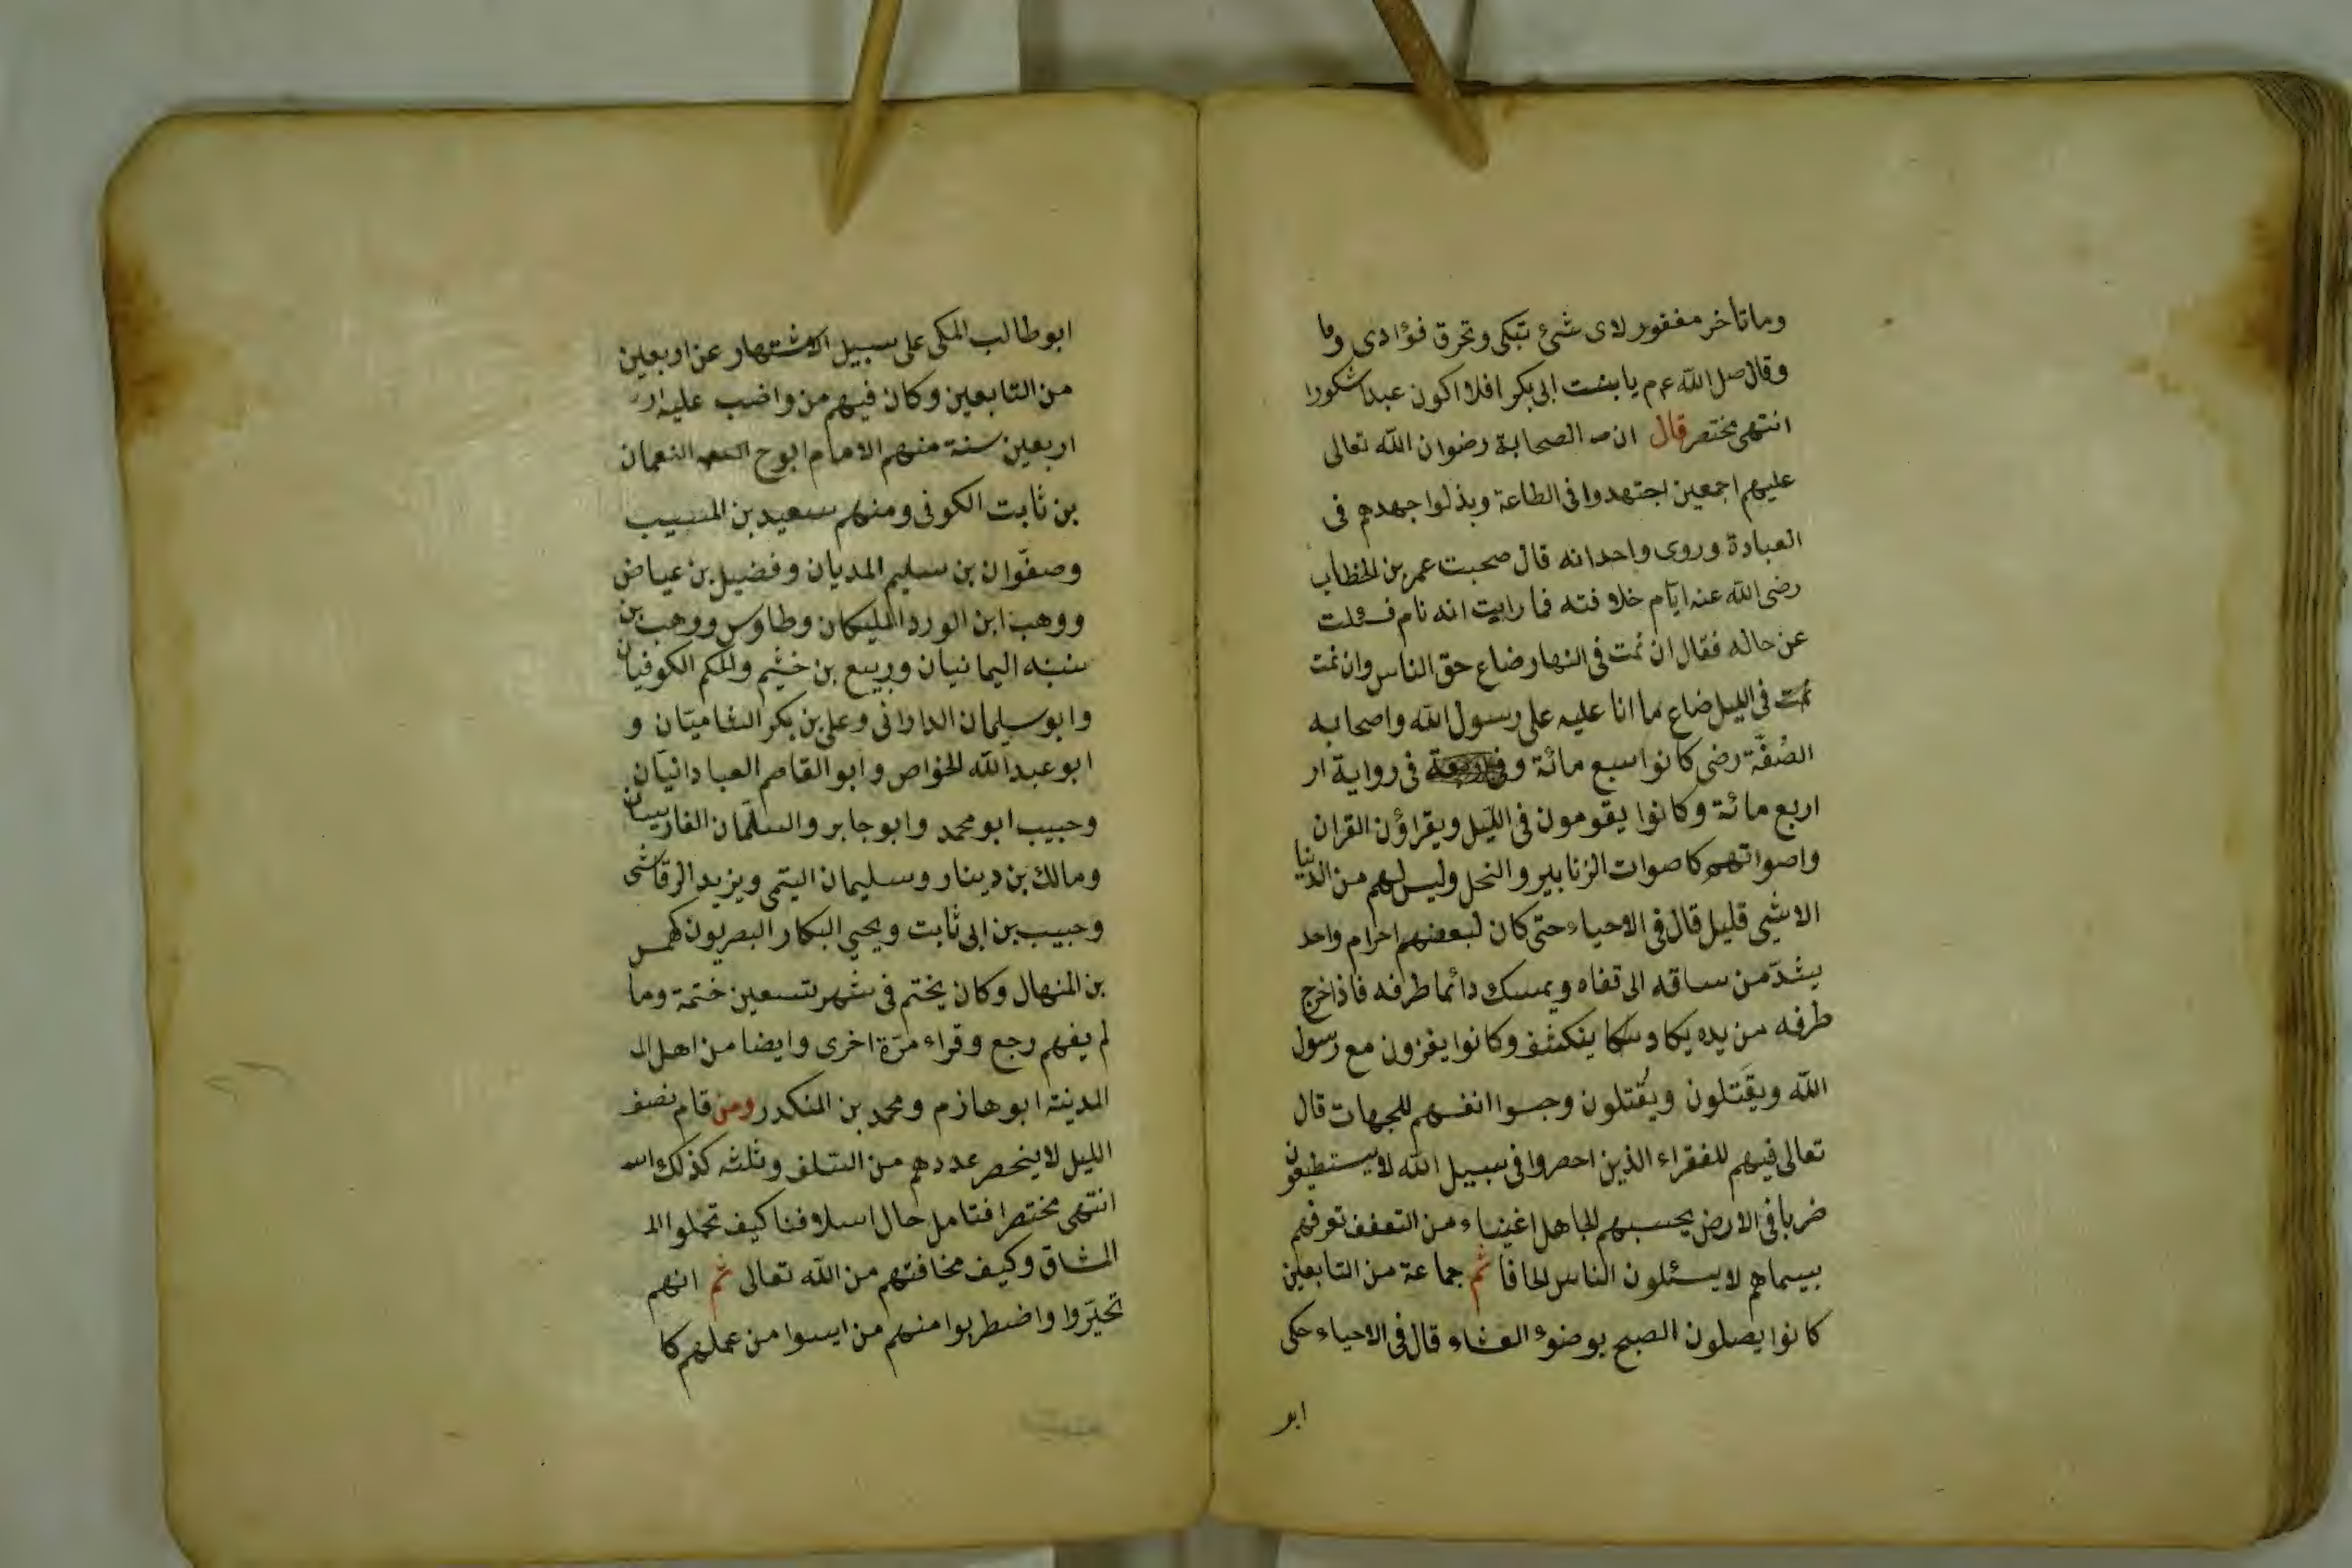 وماتاخر مغفور لاى شئ تبكى وتحرق فؤادى وما
وقال صل الله عم م يا بنت ابى بكر افلا اكون عبدا شكورا
انتهى مختصر قال ان الصحابة رضوان الله تعالى
عليهم اجمعين اجتهدوا فى الطاعة وبذلوا جهدهم فى
العبادة وروى واحد انه قال صحبت عمر بن الخطاب
رضى الله عنه ايام خلافته فما رايت انه نام فسئلت
عن حاله فقال ان نمت فى النهار ضاع حق الناس وان نمت
نمت فى الليل ضاع ما انا عليه على رسول الله واصحابه
الصُفَّة رضى كانوا سبع مائة وفى فى رواية ار
اربع مائة وكانوا يقومون فى الليل ويقراؤن القران
واصواتهم كاصوات الزنابير والنحل وليس لهم من الدنيا
الا شيى قليل قال فى الاحياء حتى كان لبعضهم احرام واحد
يشدّ من ساقه الى قفاه ويمسك دائما طرفه فاذا خرج
طرفه من يده يكاد ينكشف وكانوا يغزون مع رسول
الله ويقَتلون ويُقتلون وحبسوا انفسهم للجهات قال
تعالى فيهم للفقراء الذين احصروا فى سبيل الله لا يستطيعون
ضربا فى الارض يحسبهم الجاهل اغنياء من التعفف تعرفهم
بسيماهم لا يسئلون الناس الحافا ثم جماعة من التابعين
كانوا يصلون الصبح بوضوء العشاء قال فى الاحياء حكى
ابو
ابو طالب المكى على سبيل الاشتهار عن اربعين
من التابعين وكان فيهم من واضب عليه ار
اربعين سنة منهم الامام ابو ح النعمان
بن ثابت الكوفى ومنهم سعيد بن المسيب
وصفوان بن سليم المديان وفضيل بن عياض
ووهب ابن الورد المليكان وطاوس ووهب بن
منبه اليمانيان وربيع بن خثيم والحكم الكوفيان
وابو سليمان الدارانى وعلى بن بكر الشاميّان و
ابو عبد الله الخواص وابو القاصم العبادانيّان
وحبيب ابو محمد وابو جابر والسلّمان الفارسيان
ومالك بن دينار وسليمان اليتمى ويزيد الرقاشى
وحبيب بن ابى ثابت ويحيى البكار البصريون كهمس
بن المنهال وكان يختم فى شهر تسعين ختمة وما
لم يفهم رجع وقراء مرّة اخرى وايضا من اهل ال
المدينة ابو هازم ومحمد بن المنكدر ومن قام نصف
الليل لا ينحصر عددهم من السلف وثلثه كذلك
انتهى مختصرا فتامل حال اسلافنا كيف تحملوا ال
المشاق وكيف مخافتهم من الله تعالى ثم انهم
تحيّروا واضطربوا منهم من ايسوا من عملهم كا